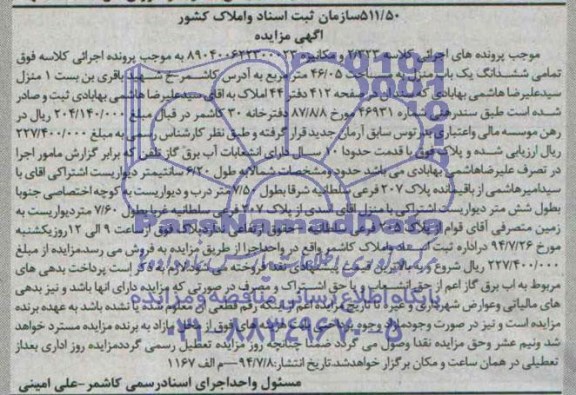 ۵۱۱/۵۰سازمان ثبت اسناد واملاک کشور
آگهی مزایده
موجب پرونده های اجرائی کلاسه ۲/۳۲۳ و مکانیزه ۸۹۰۴۰۰۶۲۲۳۰۰۰۲۳ به موجب پرونده اجرائی کلاسه فوق
تمامی ششدانگ یک باب منزل به مساحت ۴۶/۰۵ متر مربع به آدرس کاشمر-خ شهید باقری بن بست ۱ منزل
سیدعلیرضا هاشمی بهابادی که سندآن در صفحه ۴۱۲ دفتر ۴۴ املاک به اقای سیدعلیرضا هاشمی بهابادی ثبت و صادر
شده است طبق سندرهنی شماره ۲۶۹۳۱ مورخ ۸۷/۸/۸ دفترخانه ۳۰ کاشمر در قبال مبلغ ۲۰۴/۱۴۰/۰۰۰ ریال در
رهن موسسه مالی واعتباری بدر توس سابق آرمان جدید قرار گرفته و طبق نظر کارشناس رسمی به مبلغ ۲۲۷/۴۰۰/۰۰۰
ریال ارزیابی شده و پلاک فوق با قدمت حدودا ۱۰ سال دارای انشعابات آب برق گاز تلفن که برابر گزارش مامور اجرا
در تصرف علیرضاهاشمی بهابادی می باشد حدود ومشخصات شمالا به طول ۶/۲۰ سانتیمتر دیواریست اشتراکی اقای با
سیدامیرهاشمی از باقیمانده پلاک ۲۰۷ فرعی سلطانیه شرقا بطول ۷/۵۰ متر درب و دیواریست به کوچه اختصاصی جنوبا
بطول شش متر دیواریست اشتراکی با منزل اقای سیدی از پلاک ۲۰۷ فرعی سلطانیه غربا بطول ۷/۶۰ متردیواریست به
زمین متصرفی آقای قوام از پلاک ۲۰۵ فرعی سلطانیه حقوق ارتفاعی ندارد پلاک فوق از ساعت ۹ الی ۱۲ روزیکشنبه
مورخ ۹۴/۷/۲۶ دراداره ثبت اسناد واملاک کاشمر واقع در واحداجرا از طریق مزایده به فروش می رسد.مزایده از مبلغ
۲۲۷/۴۰۰/۰۰۰ ریال شروع و به بالاترین قیمت پیشنهادی نقدا فروخته می شود لازم به ذکر است پرداخت بدهی های
مربوط به اب برق گاز اعم از حق انشعاب و یا حق اشتراک و مصرف در صورتی که مزایده دارای انها باشد و نیز بدهی
های مالیاتی وعوارض شهرداری و غیره تا تاریخ مزایده اعم از اینکه رقم قطعی ان معلوم شده یا نشده باشد به عهده برنده
مزایده است و نیز در صورت وجودمازاد وجوه پرداختی بابت هزینه های فوق از محل مازاد به برنده مزایده مسترد خواهد
شد ونیم عشر وحق مزایده نقدا وصول می گردد ضمنا چنانچه روز مزایده تعطیل رسمی گرددمزایده روز اداری بعداز
تعطیلی در همان ساعت و مکان برگزار خواهدشد.تاریخ انتشار:۹۴/۷/۸—م الف ۱۱۶۷
مسئول واحداجرای اسنادرسمی کاشمر-علی امینی
ParsNamadData
پایگاه اطلاع رسانی مناقصه و مزایده
۰۲۱-۸۸۳۴۹۶۷۰-۵